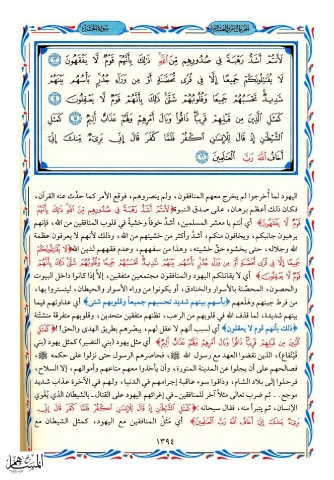 لَأَنتُمْ أَشَدُّ رَهْبَةً فِى صُدُورِهِم مِّنَ ٱللَّهِ ذَٰلِكَ بِأَنَّهُمْ قَوْمٌ لَّا يَفْقَهُونَ ﴿١٣﴾
لَا يُقَٰتِلُونَكُمْ جَمِيعًا إِلَّا فِى قُرًى مُّحَصَّنَةٍ أَوْ مِن وَرَآءِ جُدُرٍۭ بَأْسُهُم بَيْنَهُمْ
شَدِيدٌ تَحْسَبُهُمْ جَمِيعًا وَقُلُوبُهُمْ شَتَّىٰ ذَٰلِكَ بِأَنَّهُمْ قَوْمٌ لَّا يَعْقِلُونَ ﴿١٤﴾
كَمَثَلِ ٱلَّذِينَ مِن قَبْلِهِمْ قَرِيبًا ذَاقُوا۟ وَبَالَ أَمْرِهِمْ وَلَهُمْ عَذَابٌ أَلِيمٌ ﴿١٥﴾ كَمَثَلِ
ٱلشَّيْطَٰنِ إِذْ قَالَ لِلْإِنسَٰنِ ٱكْفُرْ فَلَمَّا كَفَرَ قَالَ إِنِّى بَرِىٓءٌ مِّنكَ إِنِّىٓ
أَخَافُ ٱللَّهَ رَبَّ ٱلْعَٰلَمِينَ ﴿١٦﴾
اليهود لما أخرجوا لم يخرج معهم المنافقون، ولم ينصروهم، فوقع الأمر كما حدَّث عنه القرآن،
فكان ذلك أعظم برهان، على صدق النبوة ﴿لَأَنتُمْ أَشَدُّ رَهْبَةً فِي صُدُورِهِم مِّنَ اللَّهِ ذَٰلِكَ بِأَنَّهُمْ
قَوْمٌ لَّا يَفْقَهُونَ﴾ أي أنتم يا معشر المسلمين، أشدُّ خوفاً وخشية في قلوب المنافقين من الله، فإنهم
يرهبون جانبكم، ويخافون منكم، أشدَّ وأكثر من خشيتهم من الله، وذلك لأنهم لا يعرفون عظمة
الله وجلاله، حتى يخشوه حقَّ خشيته، وهذا من سفههم، وعدم فقههم لدين الله ﴿لَا يُقَاتِلُونَكُمْ
جَمِيعًا إِلَّا فِي قُرًى مُّحَصَّنَةٍ أَوْ مِن وَرَاءِ جُدُرٍ بَأْسُهُم بَيْنَهُمْ شَدِيدٌ تَحْسَبُهُمْ جَمِيعًا وَقُلُوبُهُمْ شَتَّىٰ ذَٰلِكَ بِأَنَّهُمْ
قَوْمٌ لَّا يَعْقِلُونَ﴾ أي لا يقاتلكم اليهود والمنافقون مجتمعين متفقين، إلَّا إذا كانوا داخل البيوت
والحصون، المحصَّنة بالأسوار والخنادق، أو يكونوا من وراء الأسوار والحيطان، ليتستروا بها،
من فرط جبنهم وهلعهم ﴿بأسهم بينهم شديد تحسبهم جميعاً وقلوبهم شتى﴾ أي عداوتهم فيما
بينهم شديدة، لما قذف الله في قلوبهم من الرعب، تظنهم متفقين متحدين، وقلوبهم متفرقة متشتِّتة
﴿ذلك بأنهم قوم لا يعقلون﴾ أي لسبب أنهم لا عقل لهم، يبصِّرهم بطريق الهدى والحق!! ﴿كَمَثَلِ
الَّذِينَ مِن قَبْلِهِمْ قَرِيبًا ذَاقُوا وَبَالَ أَمْرِهِمْ وَلَهُمْ عَذَابٌ أَلِيمٌ﴾ أي مثل يهود (بني النضير) كمثل يهود (بني
قينُقاع)، الذين نقضوا العهد مع رسول الله ﷺ، فحاصرهم الرسول حتى نزلوا على حكمه ﷺ،
فصالحهم على أن يجلوا عن المدينة المنورة، وأن يأخذوا معهم متاعهم وأموالهم، إلا السلاح،
فرحلوا إلى بلاد الشام، وذاقوا سوء عاقبة إجرامهم في الدنيا، ولهم في الآخرة عذاب شديد
موجع.. ثم ضرب تعالى مثلاً آخر للمنافقين - في إغرائهم اليهود على القتال - بالشيطان الذي يُغوي
الإنسان، ثم يتبرأ منه، فقال سبحانه: ﴿كَمَثَلِ الشَّيْطَانِ إِذْ قَالَ لِلْإِنسَانِ اكْفُرْ فَلَمَّا كَفَرَ قَالَ إِنِّي
بَرِيءٌ مِّنكَ إِنِّي أَخَافُ اللَّهَ رَبَّ الْعَالَمِينَ﴾ أي مثل المنافقين مع اليهود، كمثل الشيطان مع
١٣٩٤